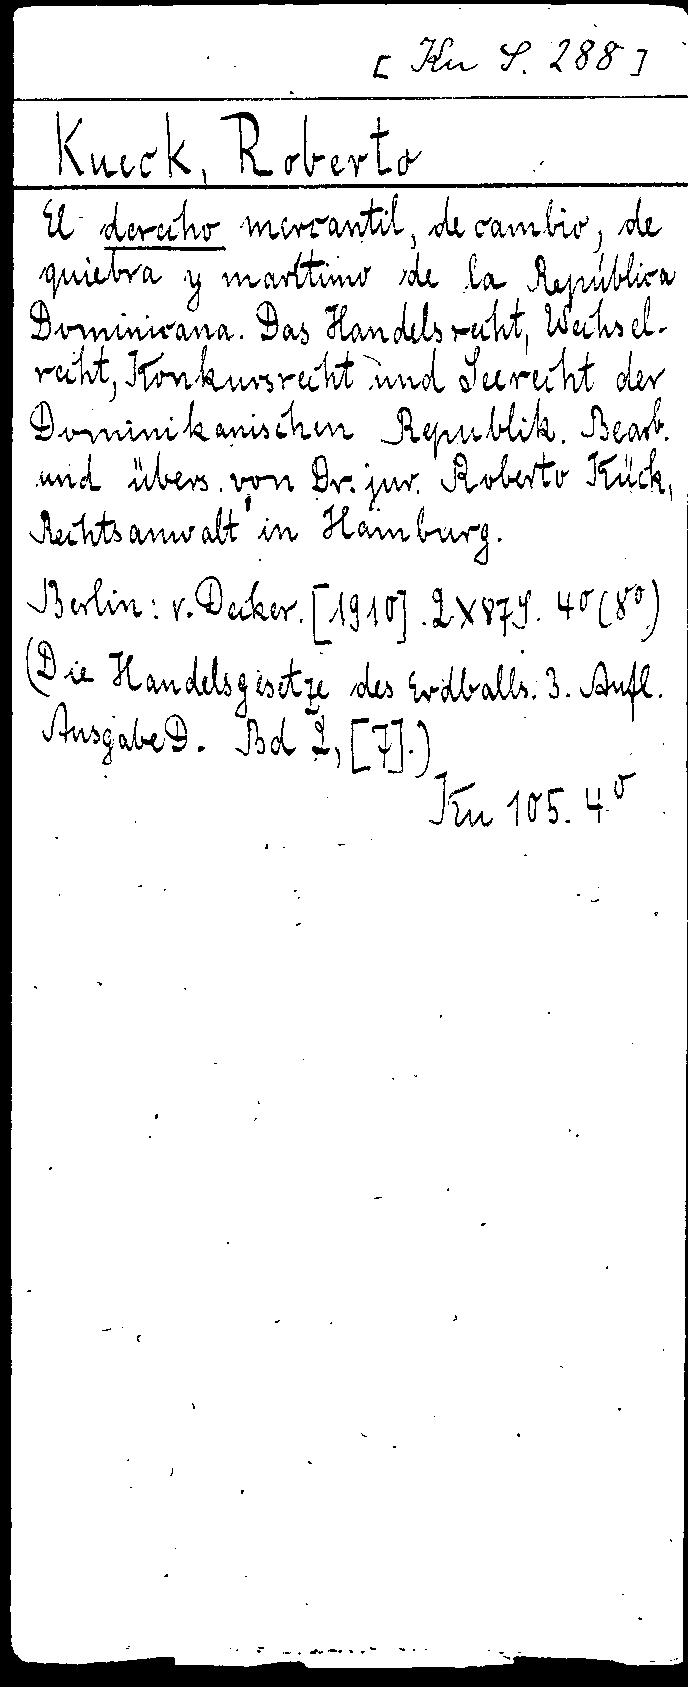 [Ku S. 288]
Kueck, Roberto
El derecho mercantil, de cambio, de
quiebra y marítimo de la República
Dominicana. Das Handelsrecht, Wechsel-
recht, Konkursrecht und Seerecht der
Dominikanischen Republik. Bearb.
und übers. von Dr. jur. Roberto Kück,
Rechtsanwalt in Hamburg.
Berlin: v. Decker. [1910]. 2×87S. 4º (8º)
(Die Handelsgesetze des Erdballs. 3. Aufl.
Ausgabe D. Bd 2, [7].)
Ku 105. 4º